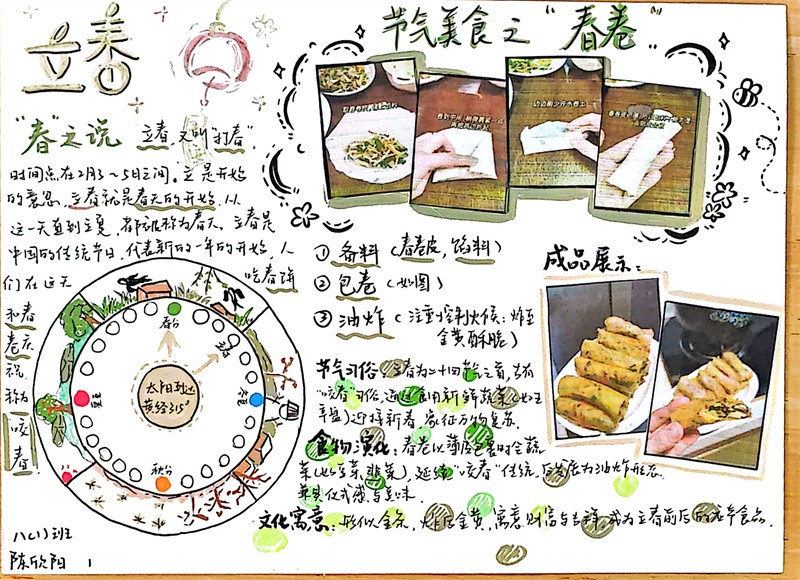 立春
节气美食之"春卷"
"春"之说 立春又叫"打春",
时间点在2月3～5日之间。立是开始
的意思,立春就是春天的开始,从
这一天直到立夏,都被称为春天。立春是
中国的传统节日,代表新的一年的开始,人
们在这天
吃春饼
和春
卷庆
祝,
称为
"咬
春"
春分
立春
夏至
冬至
秋分
太阳到达
黄经315°
八(1)班
陈欣阳
①备料(春卷皮,馅料)
②包卷(如图)
③油炸(注重控制火候:炸至
金黄酥脆)
成品展示:
节气习俗:立春为二十四节气之首,古有
"咬春"习俗,通过食用新鲜蔬菜(如五
辛盘)迎接新春,象征万物复苏。
食物演化:春卷以薄皮包裹时令蔬
菜(如芽菜、韭菜),延续"咬春"传统,后发展为油炸形态,
兼具仪式感与美味。
文化寓意:形似金条,炸后金黄,寓意财富与吉祥,成为立春前后的应节食品。